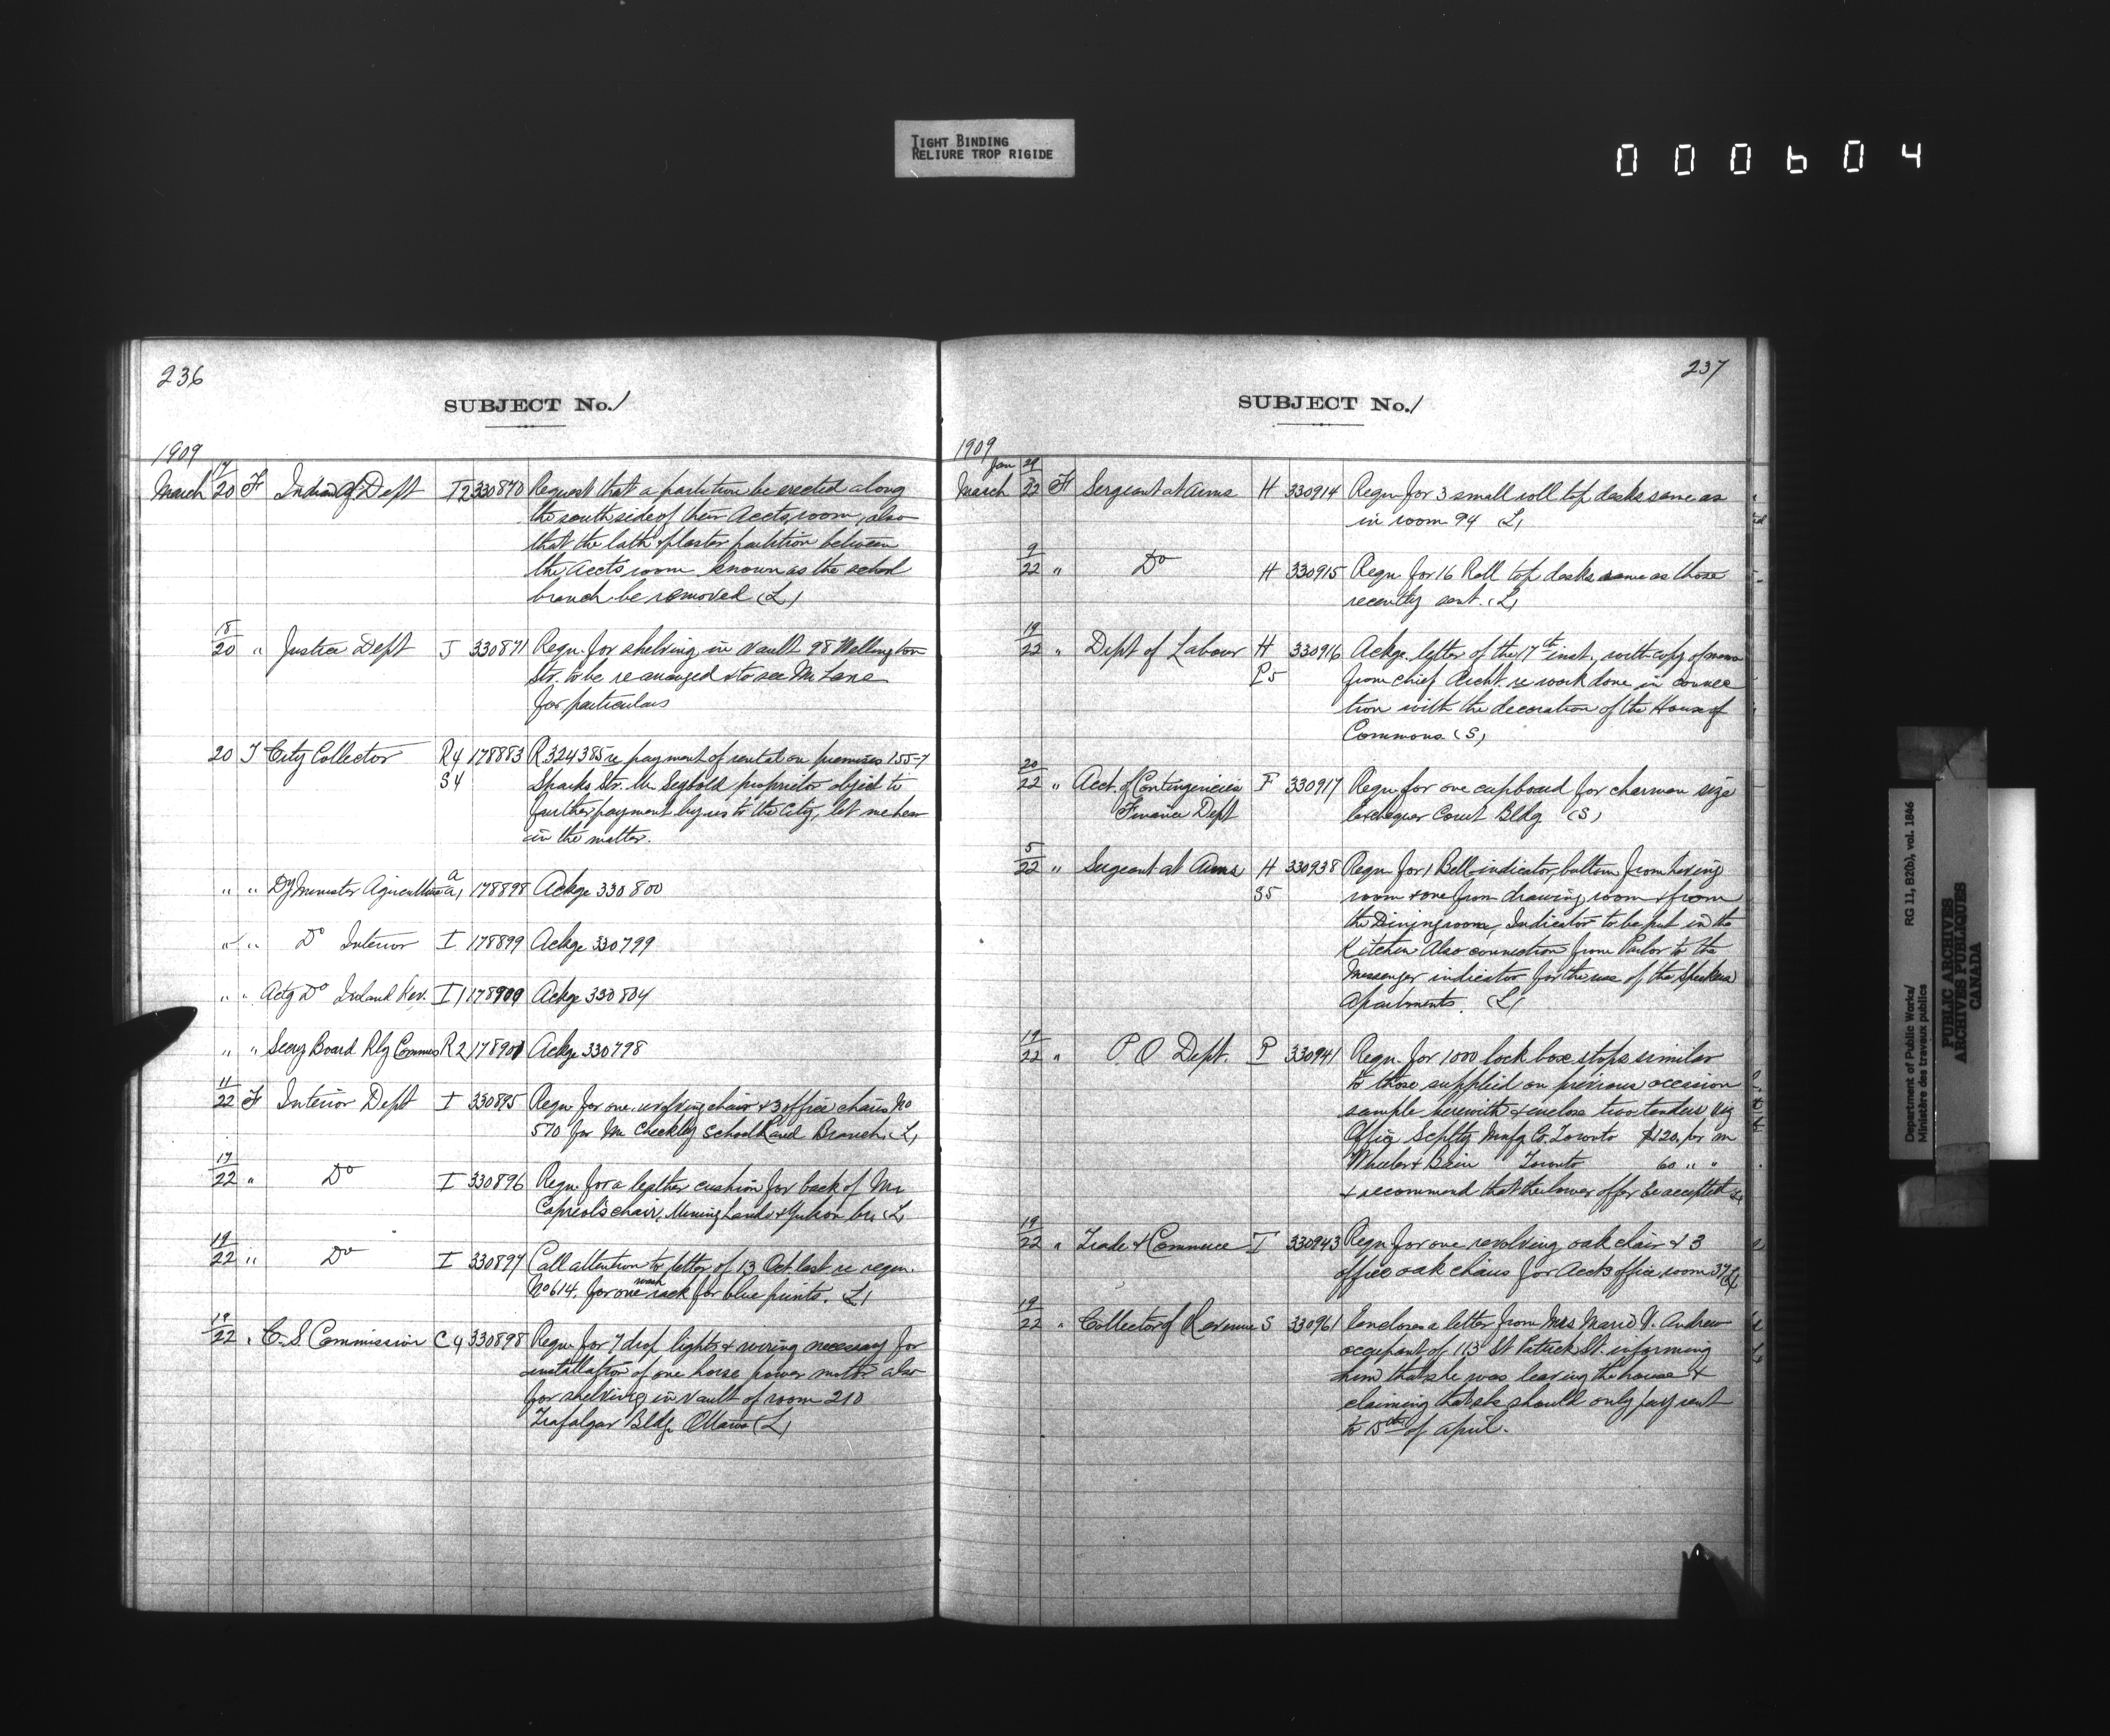 TIGHT BINDING
RELIURE TROP RIGIDE
000604
236
SUBJECT No. 1
1909
March 17/20 F Indian Aff Dept I2 330870 Request that a partition be erected along
the south side of their Accts room, also
that the lath & plaster partition between
the Accts room known as the school
branch be removed (L)
18/20 " Justice Dept J 330871 Reqn. for shelving in vault 98 Wellington
Str. to be rearranged & to see Mr Lane
for particulars
20 T City Collector R4 178883 R 324385 re payment of rental on premises 155-7
S4 Sparks Str. Mr Segbold proprietor object to
further payment by us to the City, let me hear
in the matter.
" " Dy Minister Agriculture a a1 178898 Ackge 330800
" " Do Interior I 178899 Ackge 330799
" " Actg Do Inland Rev. I1 178900 Ackge 330804
" " Secry Board Rly Commis R2 178901 Ackge 330798
11/22 F Interior Dept I 330895 Reqn for one revolving chair & 3 office chairs No
570 for Mr Checkley School Land Branch. (L)
17/22 " Do I 330896 Reqn. for a leather cushion for back of Mr
Capreol's chair, Mining Lands & Yukon br. (L)
19/22 " Do I 330897 Call attention to letter of 13 Oct. last re reqn.
No 614, for one wash rack for blue prints. (L)
19/22 " C. S. Commission C4 330898 Reqn for 7 drop lights & wiring necessary for
installation of one horse power motor also
for shelving in vault of room 210
Trafalgar Bldg. Ottawa (L)
237
SUBJECT No. 1
1909
Jan 29
March 22 F Sergeant at Arms H 330914 Reqn for 3 small roll top desks same as
in room 94 (L)
9/22 " Do H 330915 Reqn. for 16 Roll top desks same as those
recently sent. (L)
19/22 " Dept of Labour H 330916 Ackge. letter of the 17th inst., with copy of memo
P5 from chief Archt. re work done in connec
tion with the decoration of the House of
Commons. (S)
20/22 " Acct. of Contingencies F 330917 Reqn for one cupboard for charman size
Finance Dept Exchequer Court Bldg (S)
5/22 " Sergeant at Arms H 330938 Reqn for 1 Bell-indicator, buttom from
S5 room & one from drawing room & from
the Dining room, Indicator to be put in the
Kitchen Also connection from Parlor to the
Messenger indicator for the use of the Speakers
Apartments. (L)
19/22 " P. O. Dept. P 330941 Reqn. for 1000 lock box stops similar
to those supplied on previous occasion
sample herewith & enclose two tenders viz
Office Splty Mnfg Co. Toronto $120. per m
Wheeler & Bain Toronto 60 " "
& recommend that the lower offer be accepted
19/22 " Trade & Commerce T 330943 Reqn for one revolving oak chair & 3
office oak chairs for Accts office, room 37 (L)
19/22 " Collector of Revenue S 330961 Encloses a letter from Mrs Marie V. Andrew
occupant of 113 St Patrick St. informing
him that she was leaving the house &
claiming that she should only pay rent
to 15th of April.
Department of Public Works/ RG 11, B2(b), vol. 1846
Ministère des travaux publics
PUBLIC ARCHIVES
ARCHIVES PUBLIQUES
CANADA